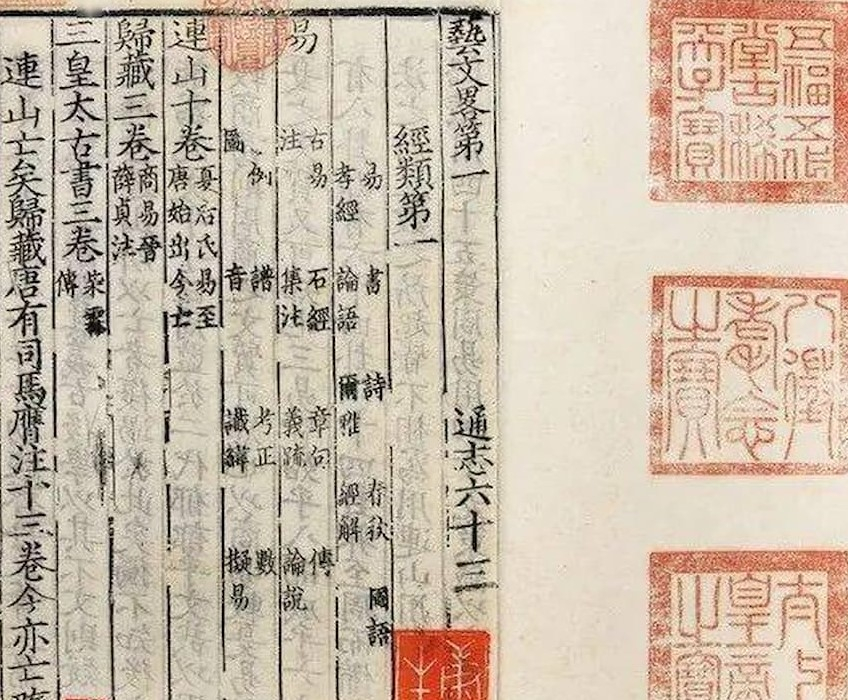 五福五代
堂古稀
天子寶
八徵
耄念
之寶
太上
皇帝
之寶
藝文畧第一 通志六十三
經類第一
易 書 詩 春秋 國語
孝經 論語 爾雅 經解
易
古易 石經 章句 傳
注 集注 義疏 論說
例 譜 考正 數
圖 音 讖緯 擬易
連山十卷 夏后氏易至
唐始出今亡
歸藏三卷 商易晉
薛貞注
三皇太古書三卷 柴霖
傳
連山亡矣歸藏唐有司馬膺注十三卷今亦亡隋